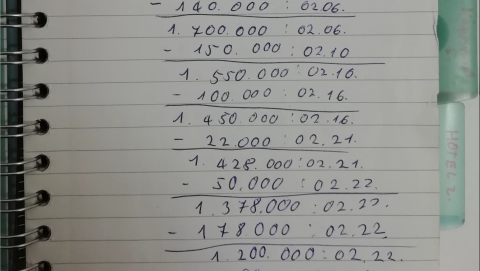 - 140.000 : 02.06.
1.700.000 : 02.06.
- 150.000 : 02.10
1.550.000 : 02.10.
- 100.000 : 02.16.
1.450.000 : 02.16.
- 22.000 : 02.21.
1.428.000 : 02.21.
- 50.000 : 02.22.
1.378.000 : 02.22.
- 178000 : 02.22
1.200.000 : 02.22.
HOTEL 2.